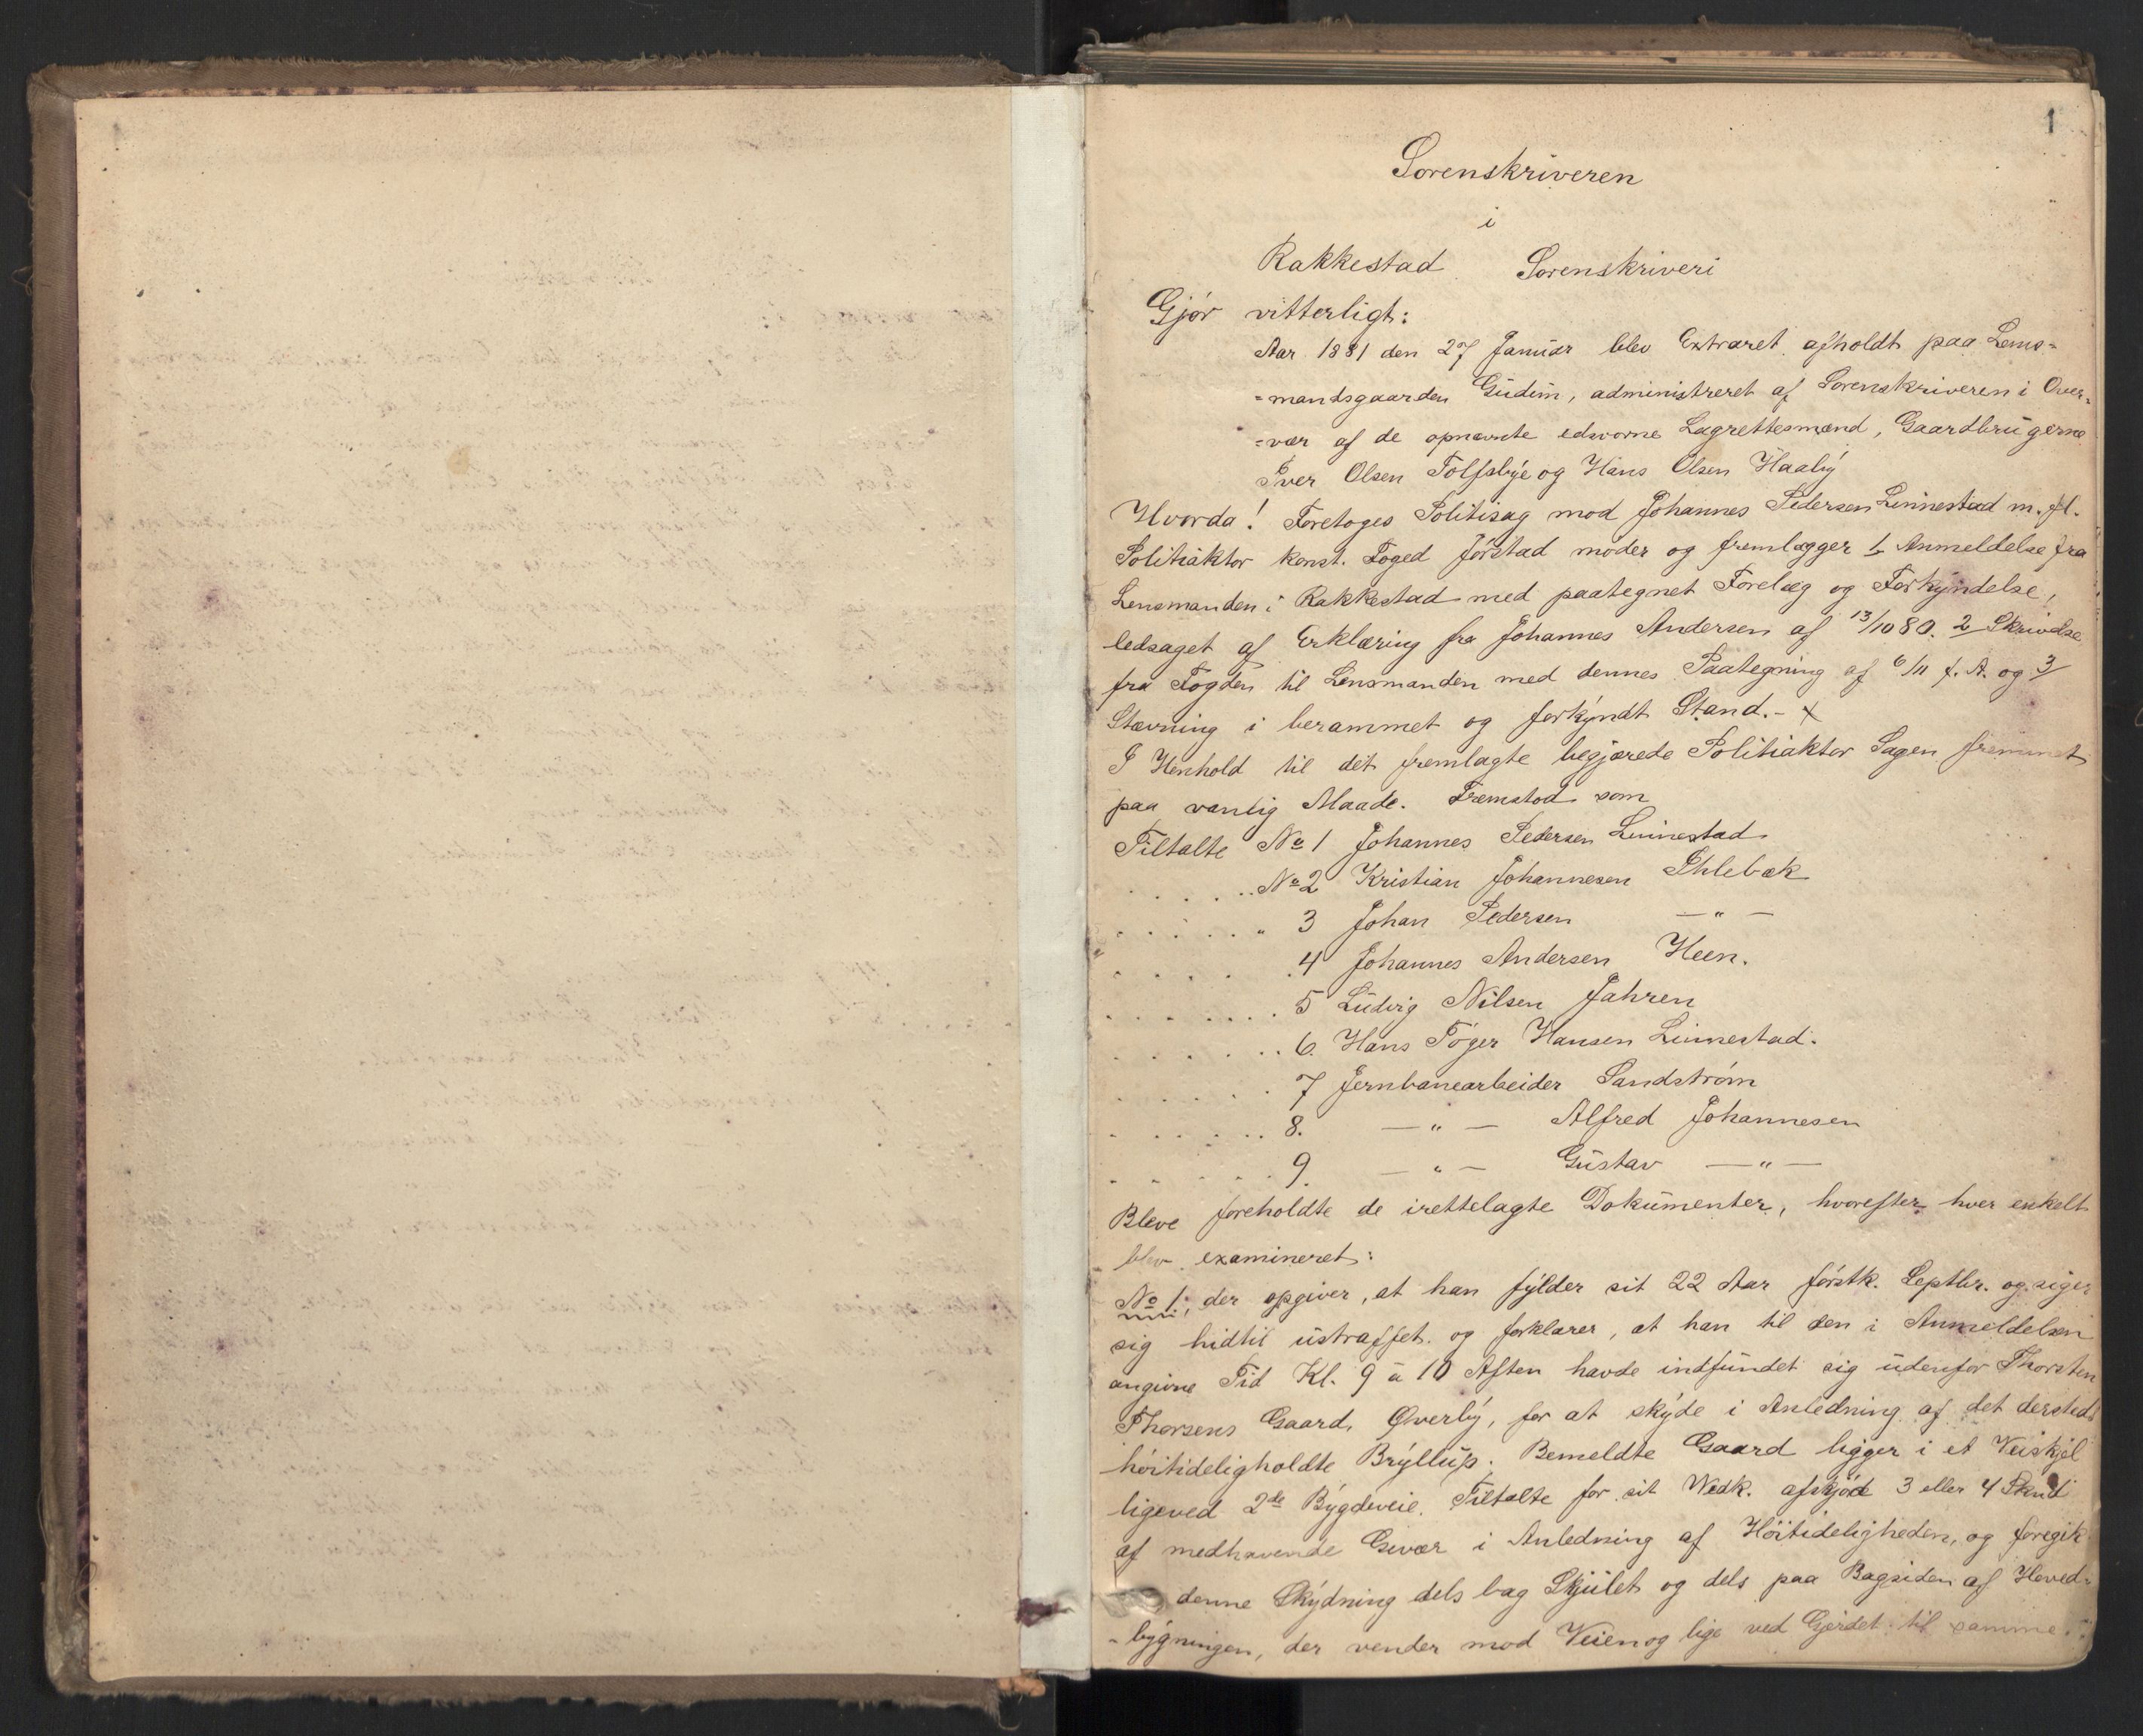 1
Sorenskriveren
i
Rakkestad Sorenskriveri
Gjør vitterligt:
Aar 1881 den 27 Januar blev Extraret afholdt paa Lens=
=mandsgaarden Gudim, administreret af Sorenskriveren i Over=
=vær af de opnævnte edsvorne Lagrettesmænd, Gaardbrugerne
Iver Olsen Tolfsbye og Hans Olsen Haaby
Hvorda! Foretoges Politisag mod Johannes Pedersen Linnestad m. fl.
Politiaktor konst. Foged Jørstad møder og fremlægger 1 Anmeldelse fra
Lensmanden i Rakkestad med paategnet Forelæg og Forkyndelse,
ledsaget af Erklæring fra Johannes Andersen af 13/10 80. 2 Skrivelse
fra Fogden til Lensmanden med dennes Paategning af 6/11 f. A. og 3/
Stævning i berammet og forkyndt Stand. -
I Henhold til det fremlagte begjærede Politiaktor Sagen fremmet
paa vanlig Maade. Fremstod som
Tiltalte No 1 Johannes Pedersen Linnestad
. . . . .. No 2 Kristian Johannesen Ihlebæk
. . . . . . " 3 Johan Pedersen — " —
. . . . . . 4 Johannes Andersen Heen.
. . . . . . . 5 Ludvig Nilsen Jahren
. . . . . . . 6. Hans Tøger Hansen Linnestad.
. . . . . . 7 Jernbanearbeider Sandstrøm
. . . . . . . 8. — " — Alfred Johannesen
. . . . . . 9. — " — Gustav — " —
Bleve foreholdte de irettelagte Dokumenter, hvorefter hver enkelt
blev examineret:
No 1, der opgiver, at han fylder sit 22 Aar førstk. Septbr. og siger
sig hidtil ustraffet og forklarer, at han til den i Anmeldelsen
angivne Tid Kl. 9 à 10 Aften havde indfundet sig udenfor Thorsten
Thorsens Gaard, Øverby, for at skyde i Anledning af det dersteds
høitideligholdte Bryllup. Bemeldte Gaard ligger i et Veiskjel
ligeved 2de Bygdeveie. Tiltalte for sit Vedk. afskjød 3 eller 4 Skud
af medhavende Gevær i Anledning af Høitideligheden, og foregik
denne Skydning dels bag Skjulet og dels paa Bagsiden af Hoved=
=bygningen, der vender mod Veien og lige ved Gjerdet til samme.